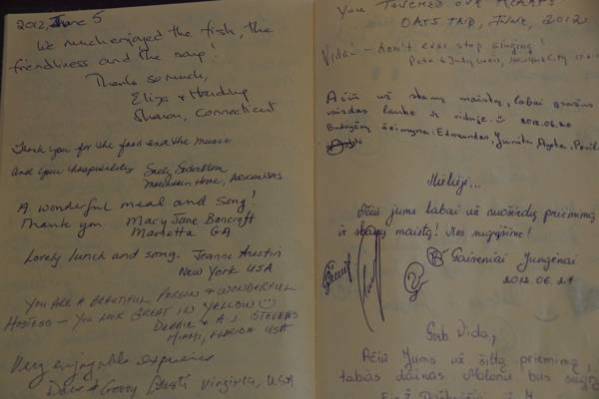 2012, June 5
We much enjoyed the fish, the
friendliness and the song!
Thanks so much,
Eliza + Harding
Sharon, Connecticut
Thank you for the food and the music
and your hospitality Sally
Mountain Home, ARKANSAS
A wonderful meal and song!
Thank you Mary Jane Bancroft
Marietta GA
Lovely lunch and song. Jeanne Austin
New York USA
YOU ARE A BEAUTIFUL PERSON & WONDERFUL
HOSTESS — YOU LOOK GREAT IN YELLOW
DEBBIE & A.J. STEVENS
MIAMI, FLORIDA USA
Very enjoyable experience
Dave & Gerry Virginia, USA
YOU TOUCHED OUR HEARTS
OATS TRIP, JUNE, 2012
Vida — don't ever stop singing!
Pete & Judy
Ačiū už skanų maistą, labai gražus
vaizdas lauke ir viduje. 2012.06.20
šeimyna: Edmundas, Jurgita, Agota,
Mielieji...
Ačiū jums labai už nuoširdų priėmimą
ir skanų maistą! Jus mylime!
2012.06.21
Vida,
Ačiū Jums už šiltą priėmimą,
labas dainas bus